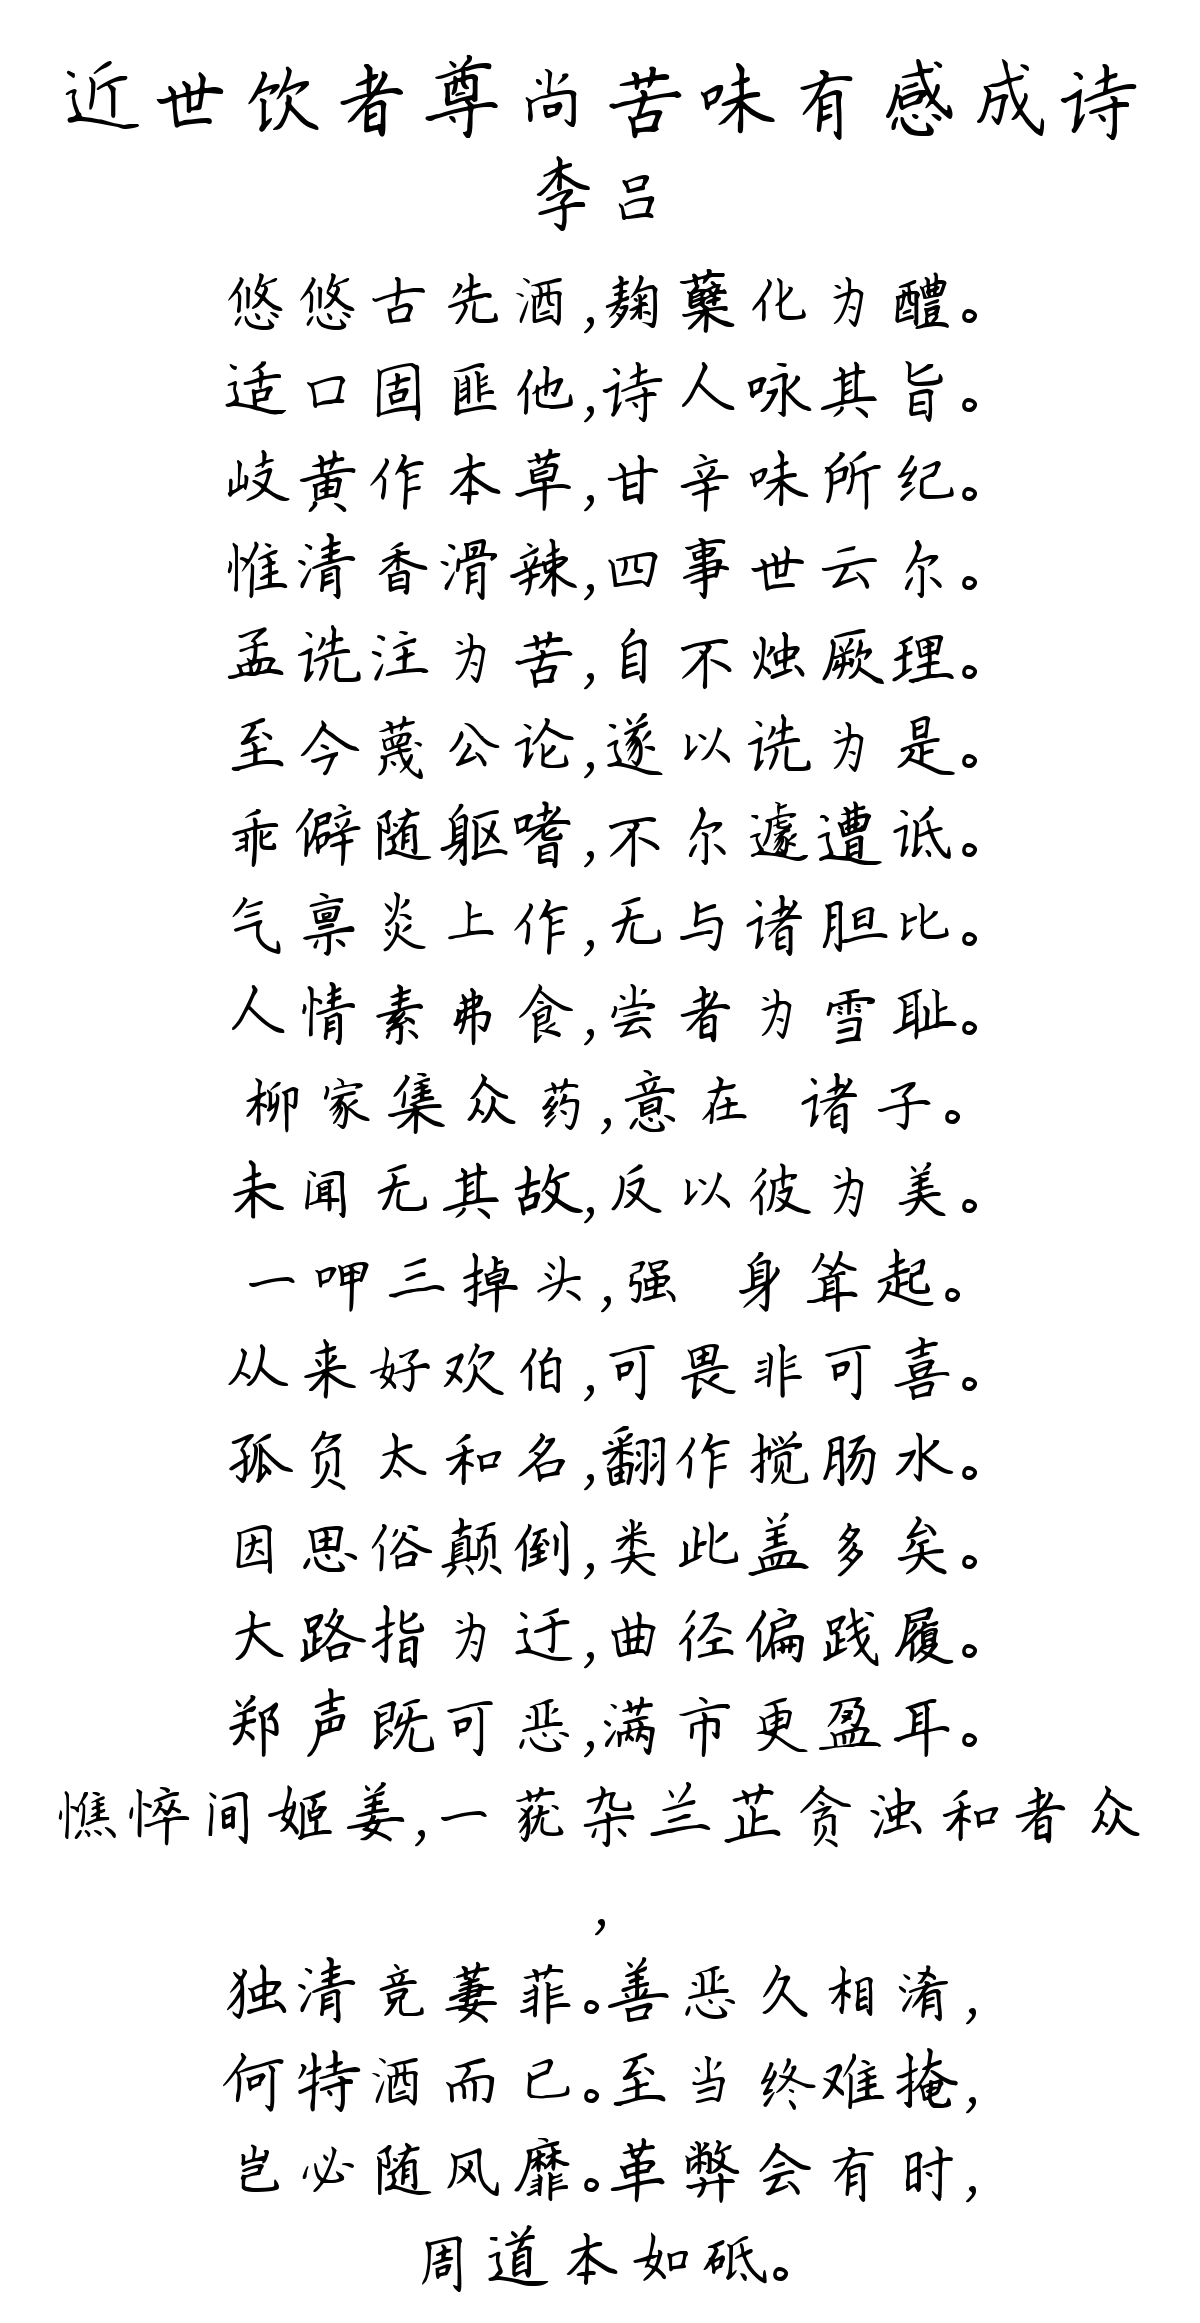 近世饮者尊尚苦味有感成诗
李吕
悠悠古先酒,麹蘖化为醴。
适口固匪他,诗人咏其旨。
岐黄作本草,甘辛味所纪。
惟清香滑辣,四事世云尔。
孟诜注为苦,自不烛厥理。
至今蔑公论,遂以诜为是。
乖僻随躯嗜,不尔遽遭诋。
气禀炎上作,无与诸胆比。
人情素弗食,尝者为雪耻。
柳家集众药,意在 诸子。
未闻无其故,反以彼为美。
一呷三掉头,强 身耸起。
从来好欢伯,可畏非可喜。
孤负太和名,翻作搅肠水。
因思俗颠倒,类此盖多矣。
大路指为迂,曲径偏践履。
郑声既可恶,满市更盈耳。
憔悴间姬姜,一莸杂兰芷贪浊和者众
,
独清竞萋菲。善恶久相淆,
何特酒而已。至当终难掩,
岂必随风靡。革弊会有时,
周道本如砥。